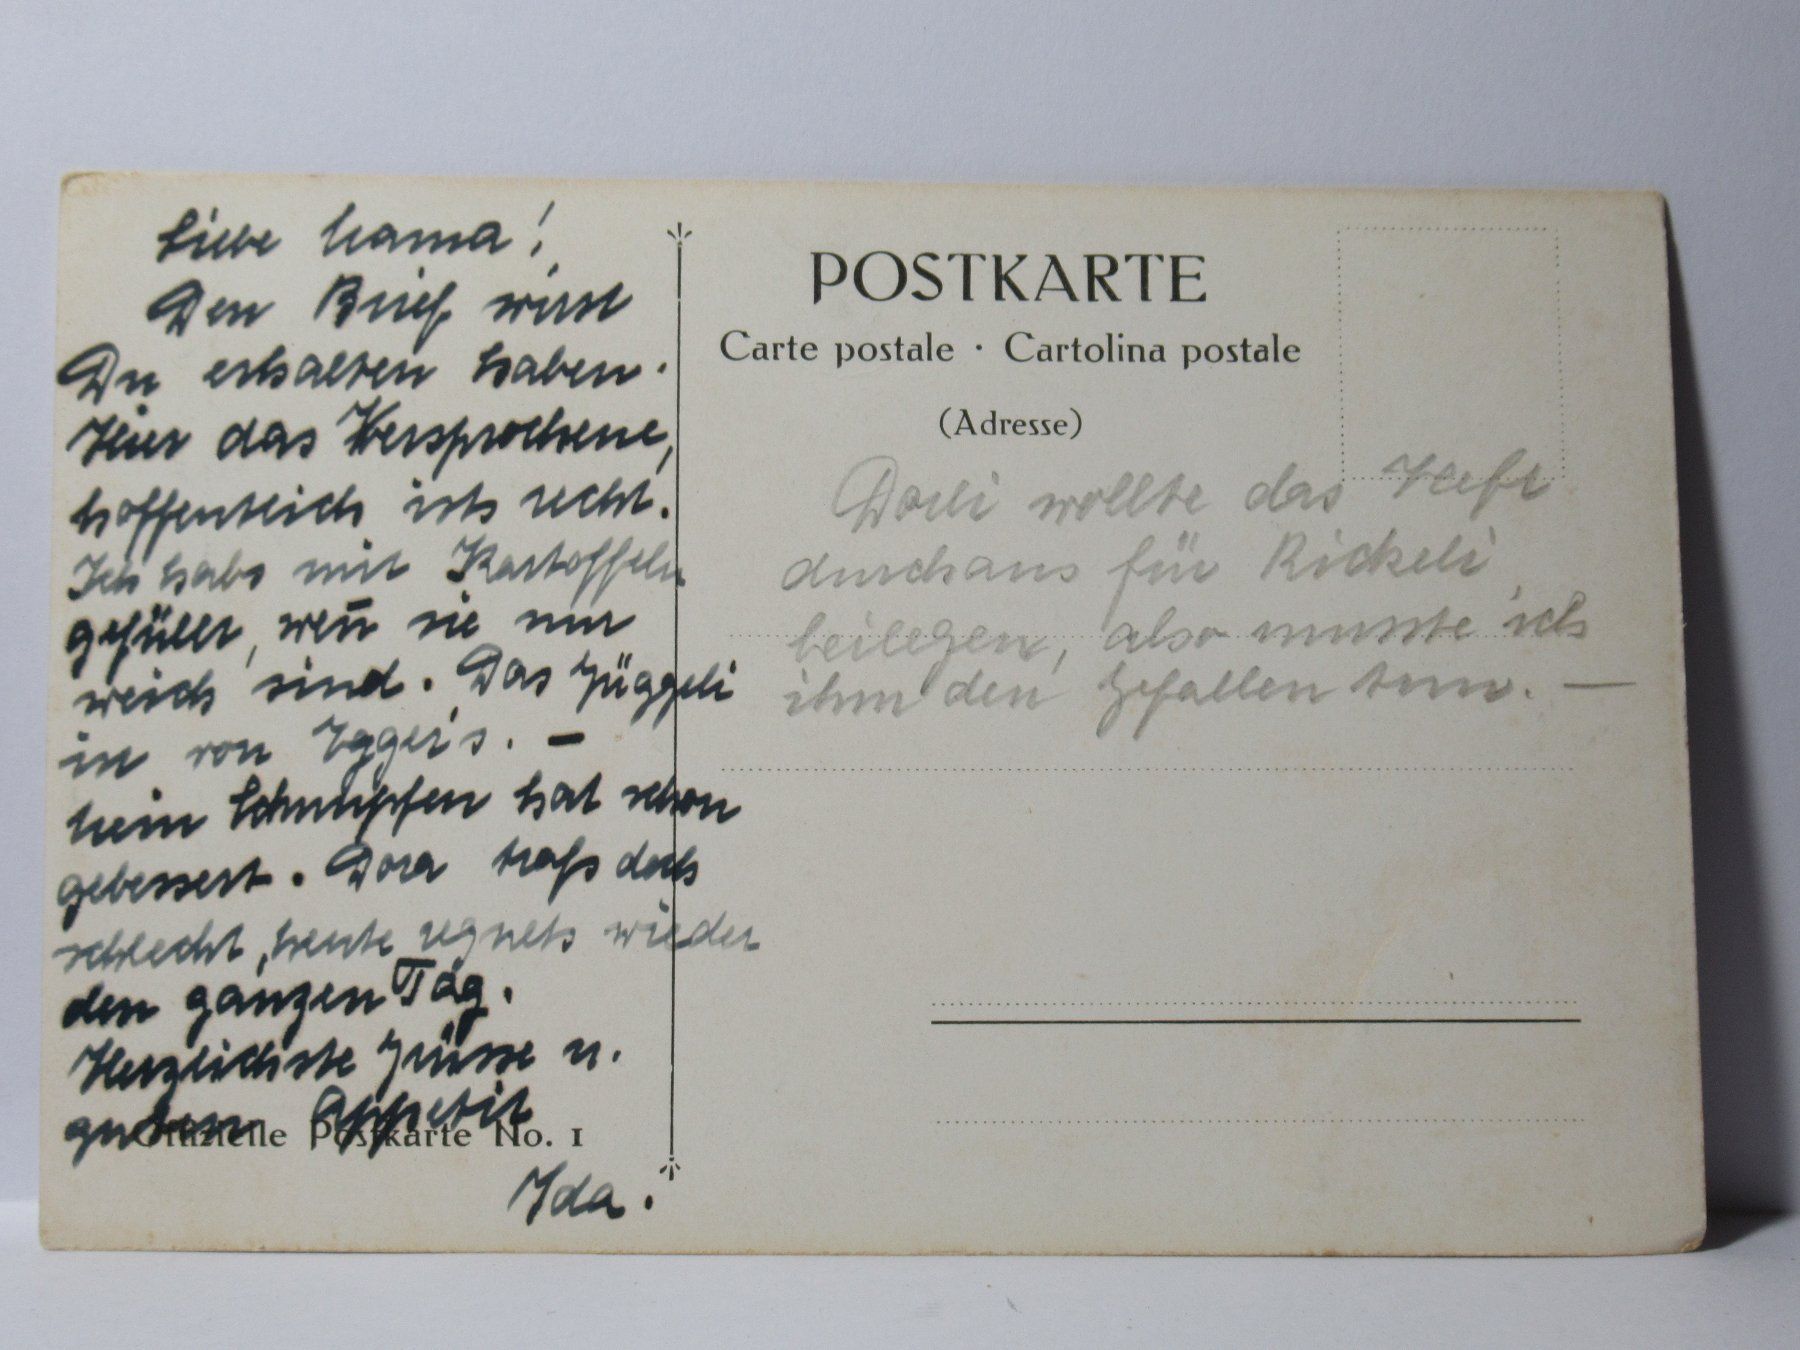 Liebe Mama!
Den Brief wirst
Du erhalten haben.
Hier das Versprochene,
hoffentlich ists recht.
Ich habs mit Kartoffeln
gefüllt, weñ sie nur
weich sind. Das Güggeli
ist von Eggers. –
Mein Schnupfen hat schon
gebessert. Dora trafs doch
schlecht, heute regnets wieder
den ganzen Tag.
Herzlichste Grüsse u.
guten Appetit
Ida.
Offizielle Postkarte No. 1
POSTKARTE
Carte postale · Cartolina postale
(Adresse)
Dorli wollte das Heft
durchaus für Rickeli
beilegen, also musste ich
ihm den Gefallen tun. —